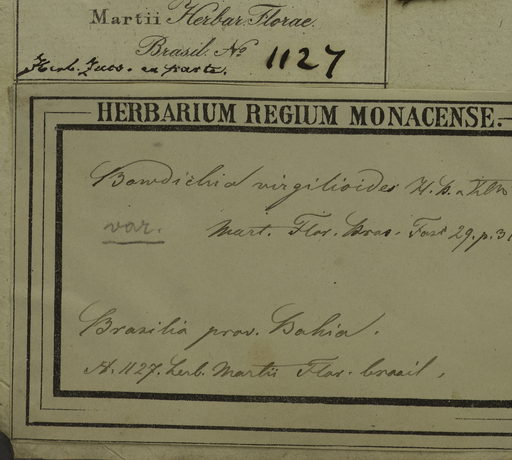 Martii Herbar. Florae
Brasil. No 1127
Herb. ex parte.
HERBARIUM REGIUM MONACENSE.
Bowdichia virgilioides H. B.
var. Mart. Flor. Bras. Fasc 29. p. 31
Brasilia prov. Bahia.
N. 1127. herb. Martii Flor. brasil.